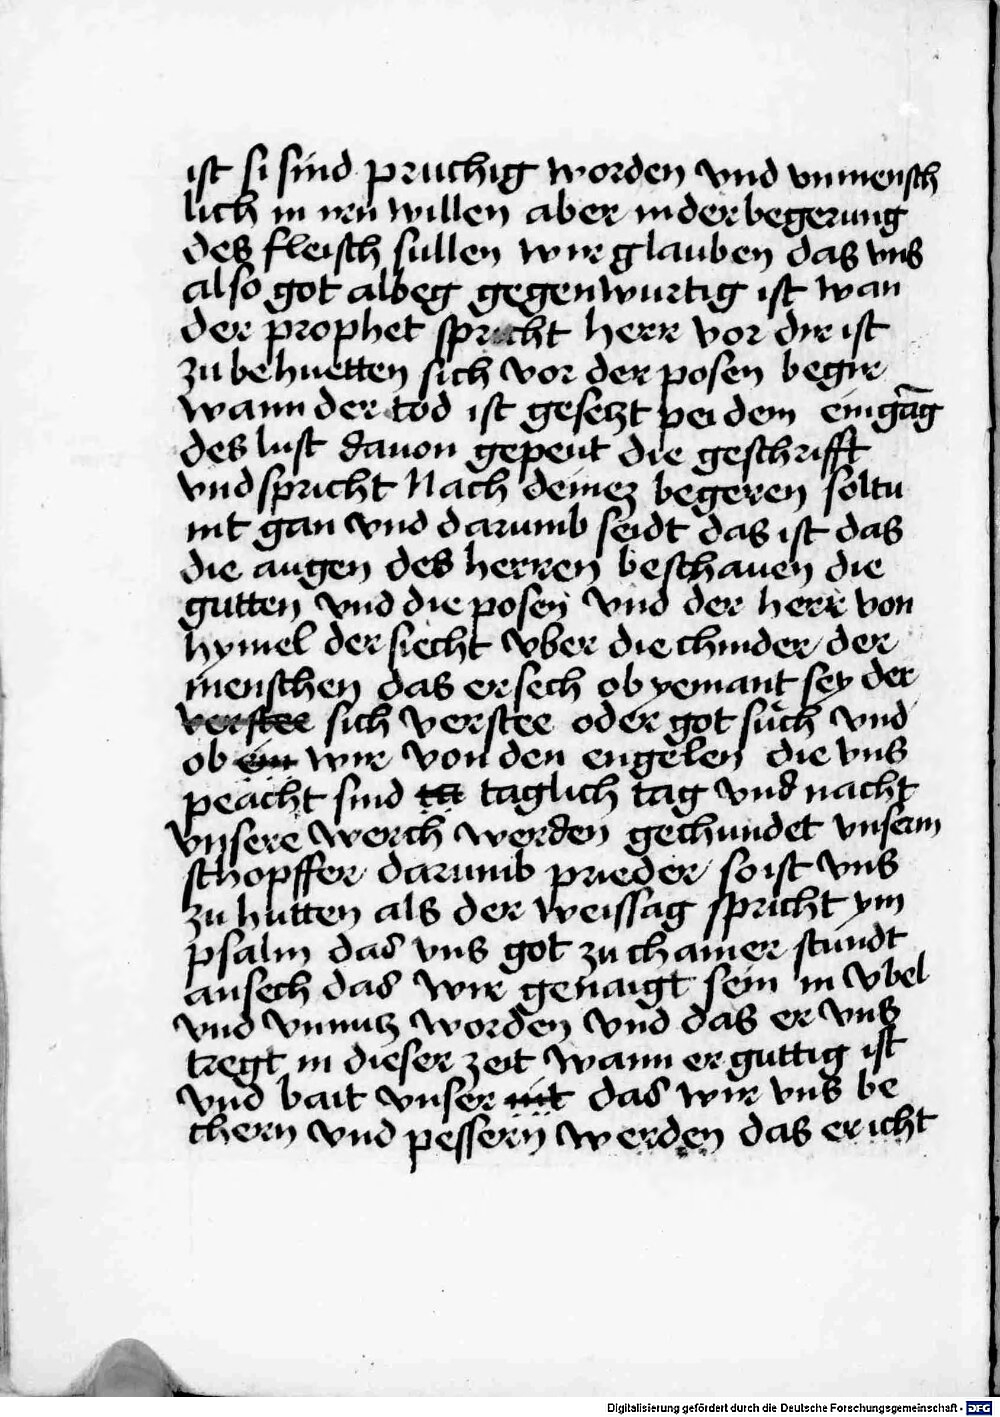 ist si sind pruchig worden vnd vnmensch
lich in iren willen aber in der begerung
des fleisch sullen wir glauben das vns
also got albeg gegenwurtig ist wan
der prophet spricht herr vor dir ist
zu behuetten sich vor der posen begir
wann der tod ist gesetzt pei dem eingāg
des lust dauon gepeut die geschrifft
vnd spricht Nach deinez begeren soltu
nit gan vnd darumb seidt das ist das
die augen des herren beschauen die
gutten vnd die posen vnd der herr von
hymel der siecht vber die chinder der
menschen das er sech ob yemant sey der
verstee sich verstee oder got such vnd
ob ein wir von den engelen die vns
peacht sind taglich tag vnd nacht
vnsere werch werden gechundet vnserm
schopffer darumb prieder so ist vns
zu hutten als der weissag spricht ym
psalm das vns got zu chainer stundt
ansech das wir genaigt sein in vbel
vnd vnnutz worden vnd das er vns
tregt in dieser zeit wann er guttig ist
vnd bait vnser nit das wir vns be
chern vnd pessern werden das er icht
Digitalisierung gefördert durch die Deutsche Forschungsgemeinschaft - DFG